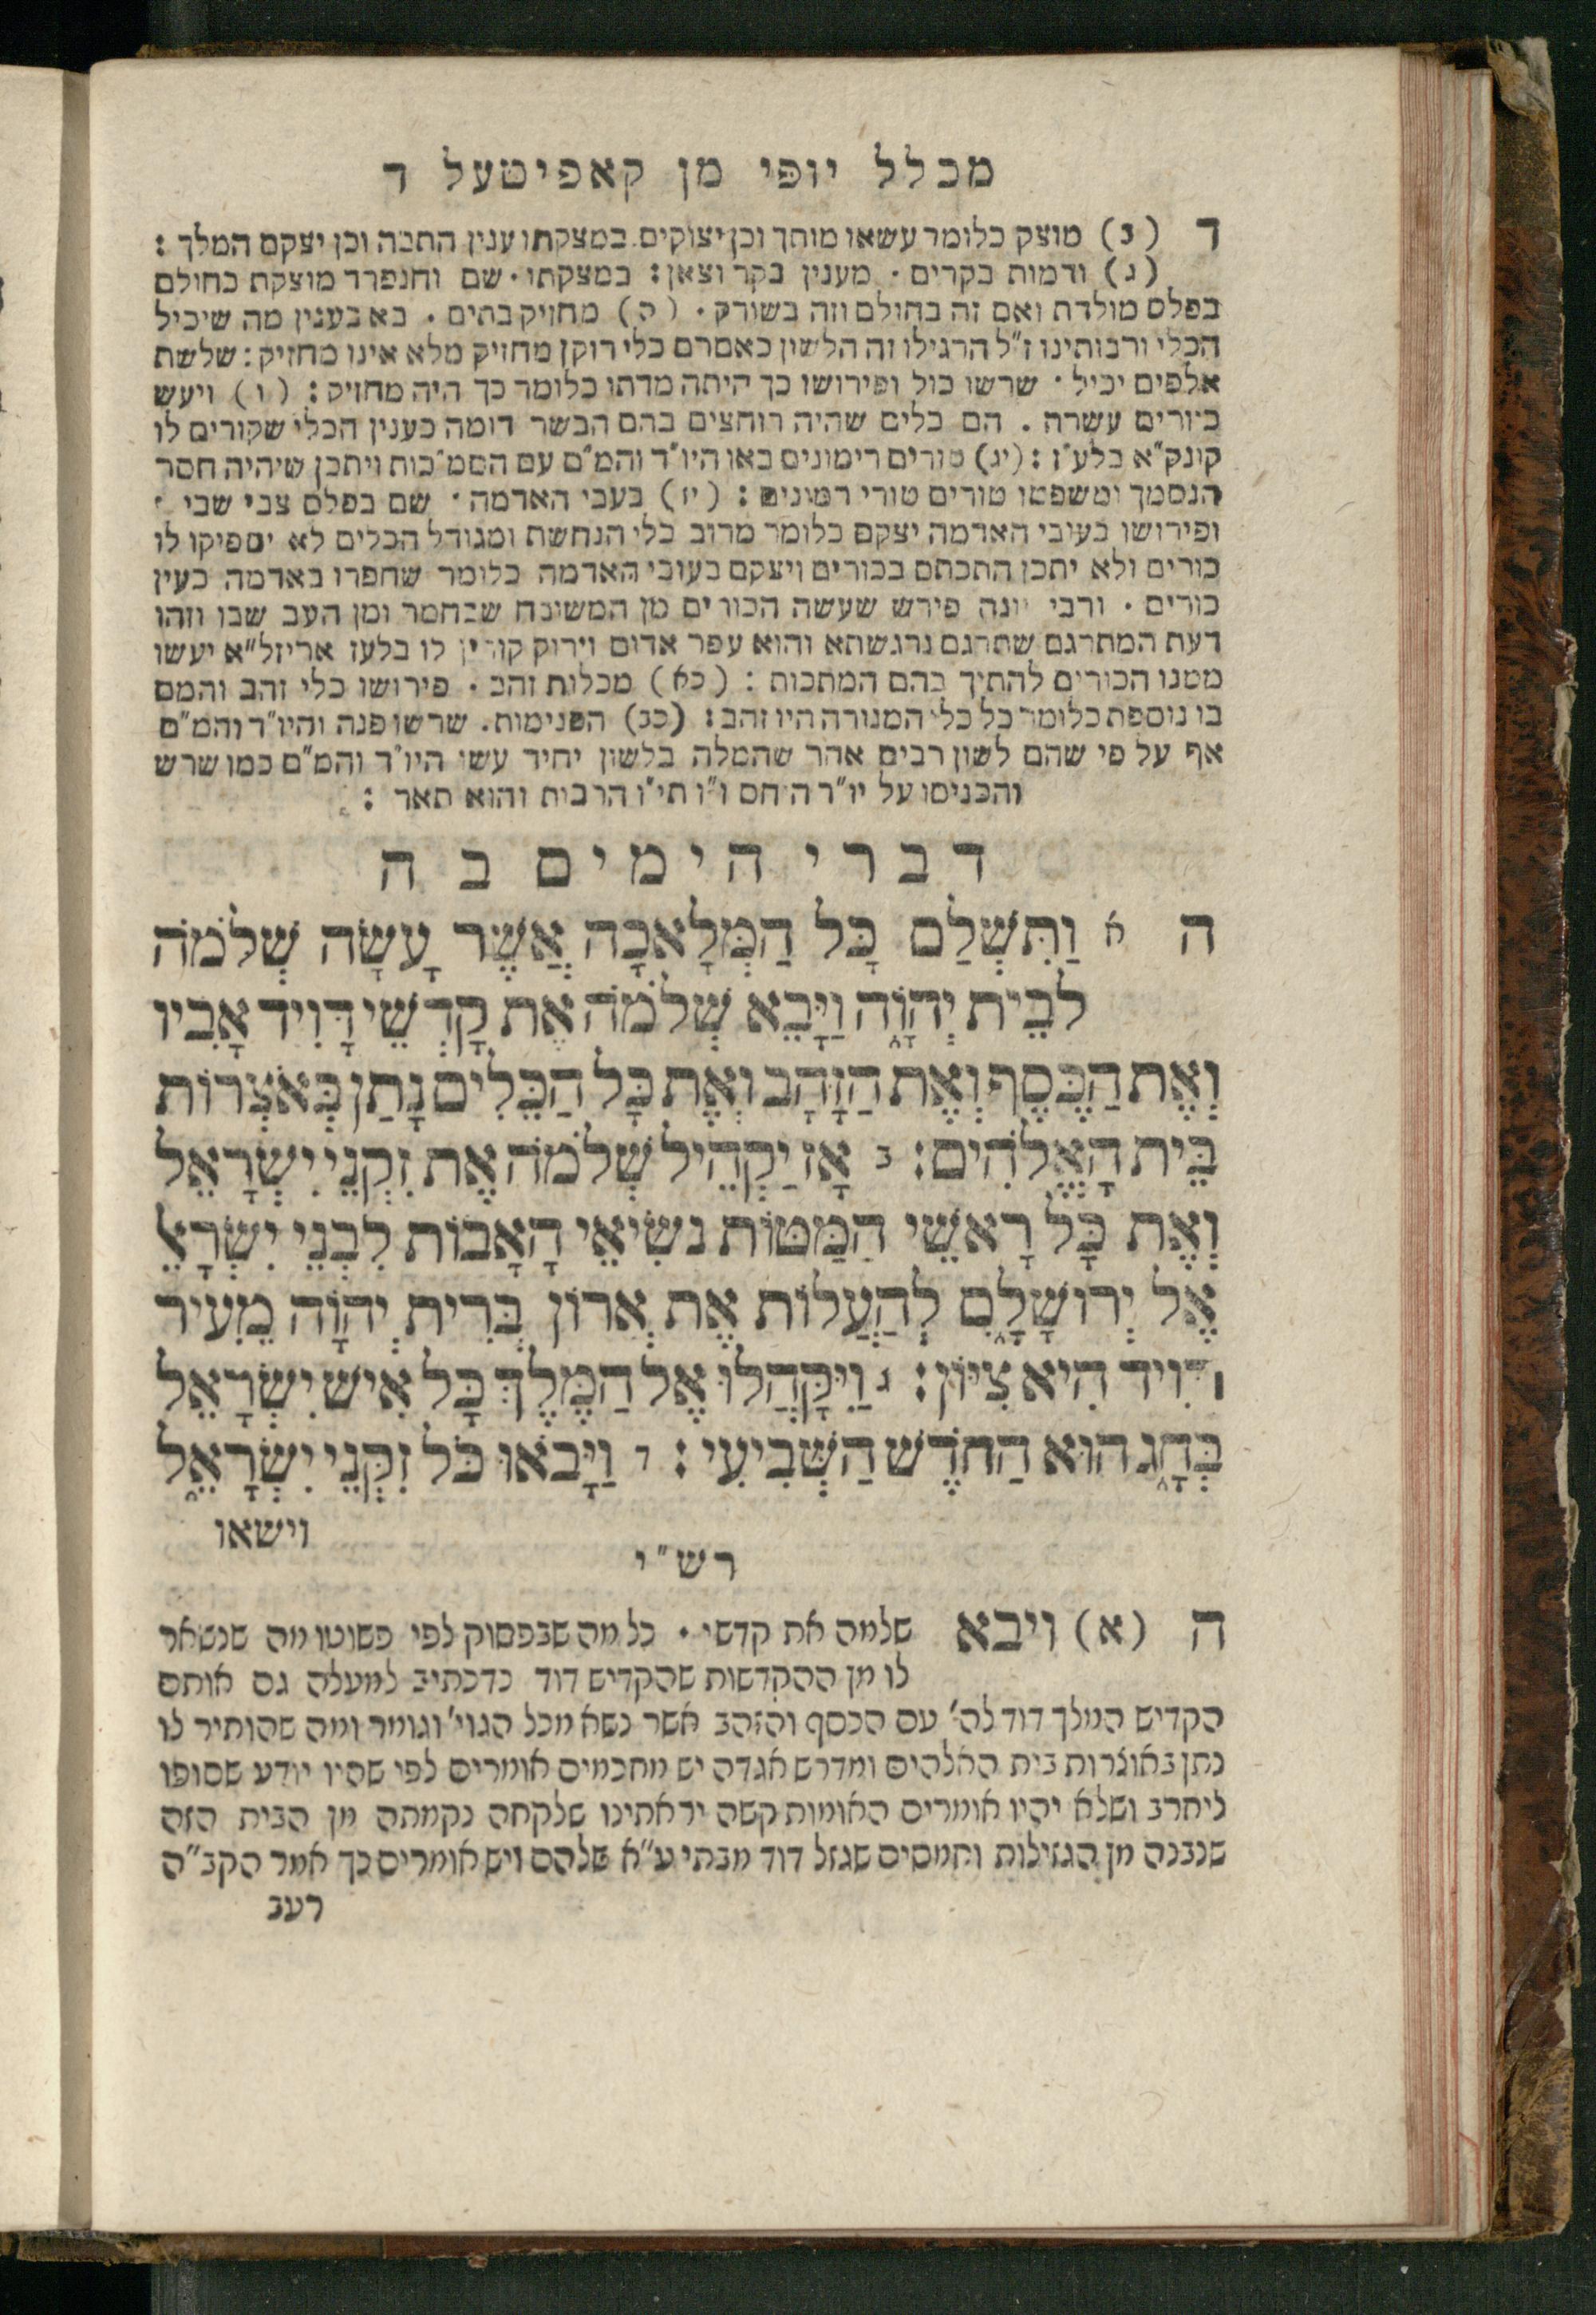 מכלל יופי מן קאפיטעל ד
ד (ב) מוצק כלומר עשאו מותך וכן יצוקים במצקתו ענין התכה וכן יצקם המלך :
(ג) ודמות בקרים · מענין בקר וצאן : במצקתו · שם והנפרד מוצקת בחולם
בפלס מולדת ואם זה בחולם וזה בשורק · (ה) מחזיק בתים · בא בענין מה שיכיל
הכלי ורבותינו ז"ל הרגילו זה הלשון כאמרם כלי רוקן מחזיק מלא אינו מחזיק : שלשת
אלפים יכיל · שרשו כול ופירושו כך היתה מדתו כלומר כך היה מחזיק : (ו) ויעש
כיורים עשרה . הם כלים שהיה רוחצים בהם הבשר דומה כענין הכלי שקורים לו
קונק"א בלע"ז : (יג) טורים רימונים באו היו"ד והמ"ם עם הסמ"כות ויתכן שיהיה חסר
הנסמך ומשפטו טורים טורי רמונים : (יז) בעבי האדמה · שם בפלס צבי שבי ·
ופירושו בעובי האדמה יצקם כלומר מרוב כלי הנחשת ומגודל הכלים לא יספיקו לו
כורים ולא יתכן התכתם בכורים ויצקם בעובי האדמה כלומר שחפרו באדמה כעין
כורים · ורבי יונה פירש שעשה הכורים מן המשובח שבחמר ומן העב שבו וזהו
דעת המתרגם שתרגם גרגשתא והוא עפר אדום וירוק קורין לו בלעז ארזיל"א יעשו
ממנו הכורים להתיך בהם המתכות : (כא) מכלות זהב · פירושו כלי זהב והמם
בו נוספת כלומר כל כלי המנורה היו זהב : (כב) הפנימות . שרשו פנה והיו"ד והמ"ם
אף על פי שהם לשון רבים אחר שהמלה בלשון יחיד עשו היו"ד והמ"ם כמו שרש
והכניסו על יו"ד היחס ו"ו תי"ו הרבות והוא תאר :
דברי הימים ב ה
ה א וַתִּשְׁלַם כָּל הַמְּלָאכָה אֲשֶׁר עָשָׂה שְׁלֹמֹה
לְבֵית יְהוָה וַיָּבֵא שְׁלֹמֹה אֶת קָדְשֵׁי דָּוִיד אָבִיו
וְאֶת הַכֶּסֶף וְאֶת הַזָּהָב וְאֶת כָּל הַכֵּלִים נָתַן בְּאֹצְרוֹת
בֵּית הָאֱלֹהִים : ב אָז יַקְהֵיל שְׁלֹמֹה אֶת זִקְנֵי יִשְׂרָאֵל
וְאֶת כָּל רָאשֵׁי הַמַּטּוֹת נשִׂיאֵי הָאָבוֹת לִבְנֵי יִשְׂרָאֵל
אֶל יְרוּשָׁלִָם לְהַעֲלוֹת אֶת אֲרוֹן בְּרִית יְהוָה מֵעִיר
דָּוִיד הִיא צִיּוֹן : ג וַיִּקָּהֲלוּ אֶל הַמֶּלֶךְ כָּל אִישׁ יִשְׂרָאֵל
בְּחָג הוּא הַחֹדֶשׁ הַשְּׁבִיעִי : ד וַיָּבֹאוּ כֹּל זִקְנֵי יִשְׂרָאֵל
וישאו
רש"י
ה (א) ויבא שלמה את קדשי · כל מה שבפסוק לפי פשוטו מה שנשאר
לו מן ההקדשות שהקדיש דוד כדכתיב למעלה גם אותם
הקדיש המלך דוד לה' עם הכסף והזהב אשר נשא מכל הגוי' וגומר ומה שהותיר לו
נתן באוצרות בית האלהים ומדרש אגדה יש מחכמים אומרים לפי שהיו יודע שסופו
ליחרב ושלא יהיו אומרים האומות קשה יראתינו שלקחה נקמתה מן הבית הזה
שנבנה מן הגזילות וחמסים שגזל דוד מבתי ע"א שלהם ויש אומרים כך אמר הקב"ה
רעב